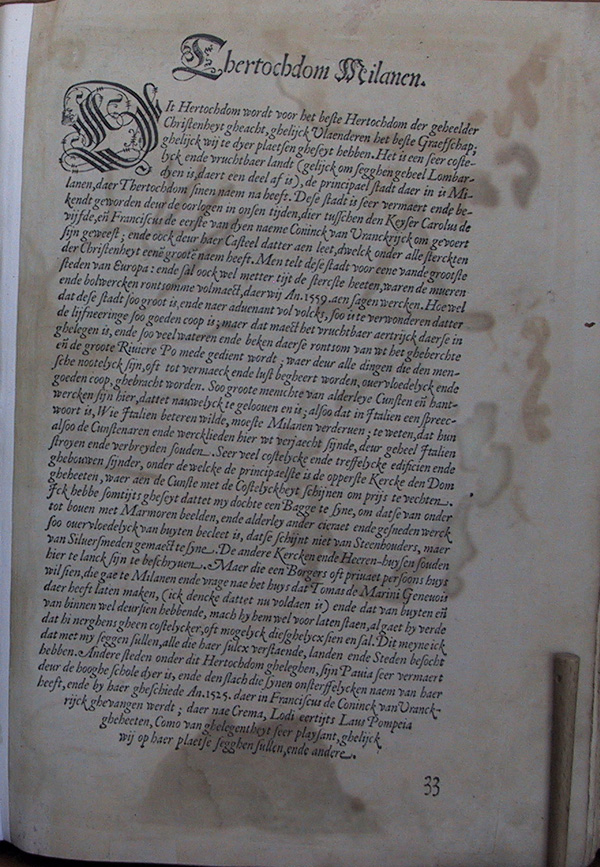 Thertochdom Milanen.
DIt Hertochdom wordt voor het beste Hertochdom der geheelder
Christenheyt gheacht, ghelijck Vlaenderen het beste Graefschap;
ghelijck wij te dyer plaetsen gheseyt hebben. Het is een seer coste-
lyck ende vruchtbaer landt (gelijck om segghen geheel Lombar-
dyen is, daert een deel af is), de principael stadt daer in is Mi-
lanen, daer Thertochdom sinen naem na heeft. Dese stadt is seer vermaert ende be-
kendt geworden deur de oorlogen in onsen tijden, dier tusschen den Keyser Carolus de
vijfde, eñ Franciscus de eerste van dyen naeme Coninck van Vranckrijck om gevoert
sijn geweest; ende oock deur haer Casteel datter aen leet, dwelck onder alle sterckten
der Christenheyt eenē groote naem heeft. Men telt dese stadt voor eene vande grootste
steden van Europa: ende sal oock wel metter tijt de stercste heeten, waren de mueren
ende bolwercken rontsomme volmaect, daer wij An. 1559. aen sagen wercken. Hoe wel
dat dese stadt soo groot is, ende naer aduenant vol volcks, soo iste verwonderen datter
de lijfneeringe soo goeden coop is; maer dat maect het vruchtbaer aertrijck daerse in
ghelegen is, ende soo veel wateren ende beken daerse rontsom van wt het gheberchte
eñ de groote Riuiere Po mede gedient wordt; waer deur alle dingen die den men-
sche nootelyck sijn, oft tot vermaeck ende lust begheert worden, ouervloedelyck ende
goeden coop, ghebracht worden. Soo groote menichte van alderleye Cunsten eñ hant-
wercken sijn hier, dattet nauwelyck te geloouen en is; alsoo dat in Italien een spreec-
woort is, Wie Italien beteren wilde, moeste Milanen verderuen; te weten, dat hun
alsoo de Cunstenaren ende wercklieden hier wt verjaecht sijnde, deur geheel Italien
stroyen ende verbreyden souden. Seer veel costelycke ende treffelycke edificien ende
ghebouwen sijnder, onder de welcke de principaelste is de opperste Kercke den Dom
gheheeten, waer aen de Cunste met de Costelyckheyt schijnen om prijs te vechten.
Ick hebbe somtijts gheseyt dattet my dochte een Bagge te syne, om datse van onder
tot bouen met Marmoren beelden, ende alderley ander cieraet ende gesneden werck
soo ouervloedelyck van buyten becleet is, datse schijnt niet van Steenhouders, maer
van Siluersmeden gemaect te syne. De andere Kercken ende Heeren-huysen souden
hier te lanck sijn te beschryuen. Maer die een Borgers oft priuaet persoons huys
wil sien, die gae te Milanen ende vrage nae het huys dat Tomas de Marini Genuois
daer heeft laten maken, (ick dencke dattet nu voldaen is) ende dat van buyten eñ
van binnen wel deursien hebbende, mach hy hem wel voor laten staen, al gaet hy verde
dat hi nerghens gheen costelycker, oft mogelyck diesghelycx sien en sal. Dit meyne ick
dat met my seggen sullen, alle die haer sulcx verstaende, landen ende Steden besocht
hebben. Andere steden onder dit Hertochdom gheleghen, sijn Pauia seer vermaert
deur de hooghe schole dyer is, ende den slach die synen onsterffelycken naem van haer
heeft, ende by haer gheschiede An. 1525. daer in Franciscus de Coninck van Vranck-
rijck ghevangen werdt; daer nae Crema, Lodi eertijts Laus Pompeia
gheheeten, Como van ghelegentheyt seer playsant, ghelijck
wij op haer plaetse segghen sullen, ende andere.
33